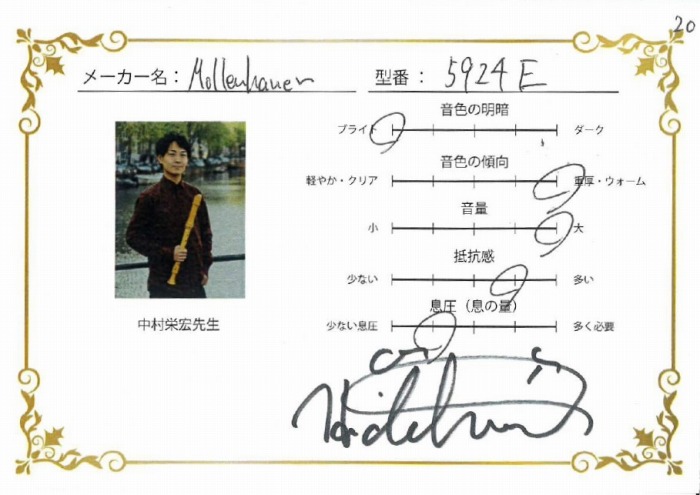 20
メーカー名： Mollenhauer 型番： 5924E
音色の明暗
ブライト ダーク
音色の傾向
軽やか・クリア 重厚・ウォーム
音量
小 大
抵抗感
少ない 多い
息圧（息の量）
少ない息圧 多く必要
中村栄宏先生